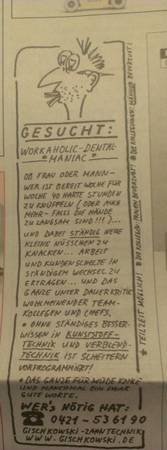 GESUCHT:
WORKAHOLIC-DENTAL-
"MANIAC"
OB FRAU ODER MANN-
WER IST BEREIT WOCHE FÜR
WOCHE 40 HARTE STUNDEN
ZU KNÜPPELN (ODER AUCH
MEHR- FALLS DIE HÄNDE
ZU LANGSAM SIND !!!)...
UND DABEI STÄNDIG NEUE
KLEINE NÜSSCHEN ZU
KNACKEN... ARBEIT
UND KUNDENSCHELTE IN
STÄNDIGEM WECHSEL ZU
ERTRAGEN... UND DAS
GANZE UNTER DAUERKRITIK
WOHLMEINENDER TEAM-
KOLLEGEN UND CHEFS.
• OHNE STÄNDIGES BESSER-
WISSEN IN KUNSTSTOFF-
TECHNIK UND VERBLEND-
TECHNIK IST SCHEITERN
VORPROGRAMMIERT!
• DAS GANZE FÜR MÜDE KNETE
UND MANCHMAL EIN PAAR
GUTE WORTE.
WER'S NÖTIG HAT:
☎ 0421-536190
GISCHKOWSKI-ZAHNTECHNIK
WWW.GISCHKOWSKI.DE
TEILZEIT MÖGLICH!